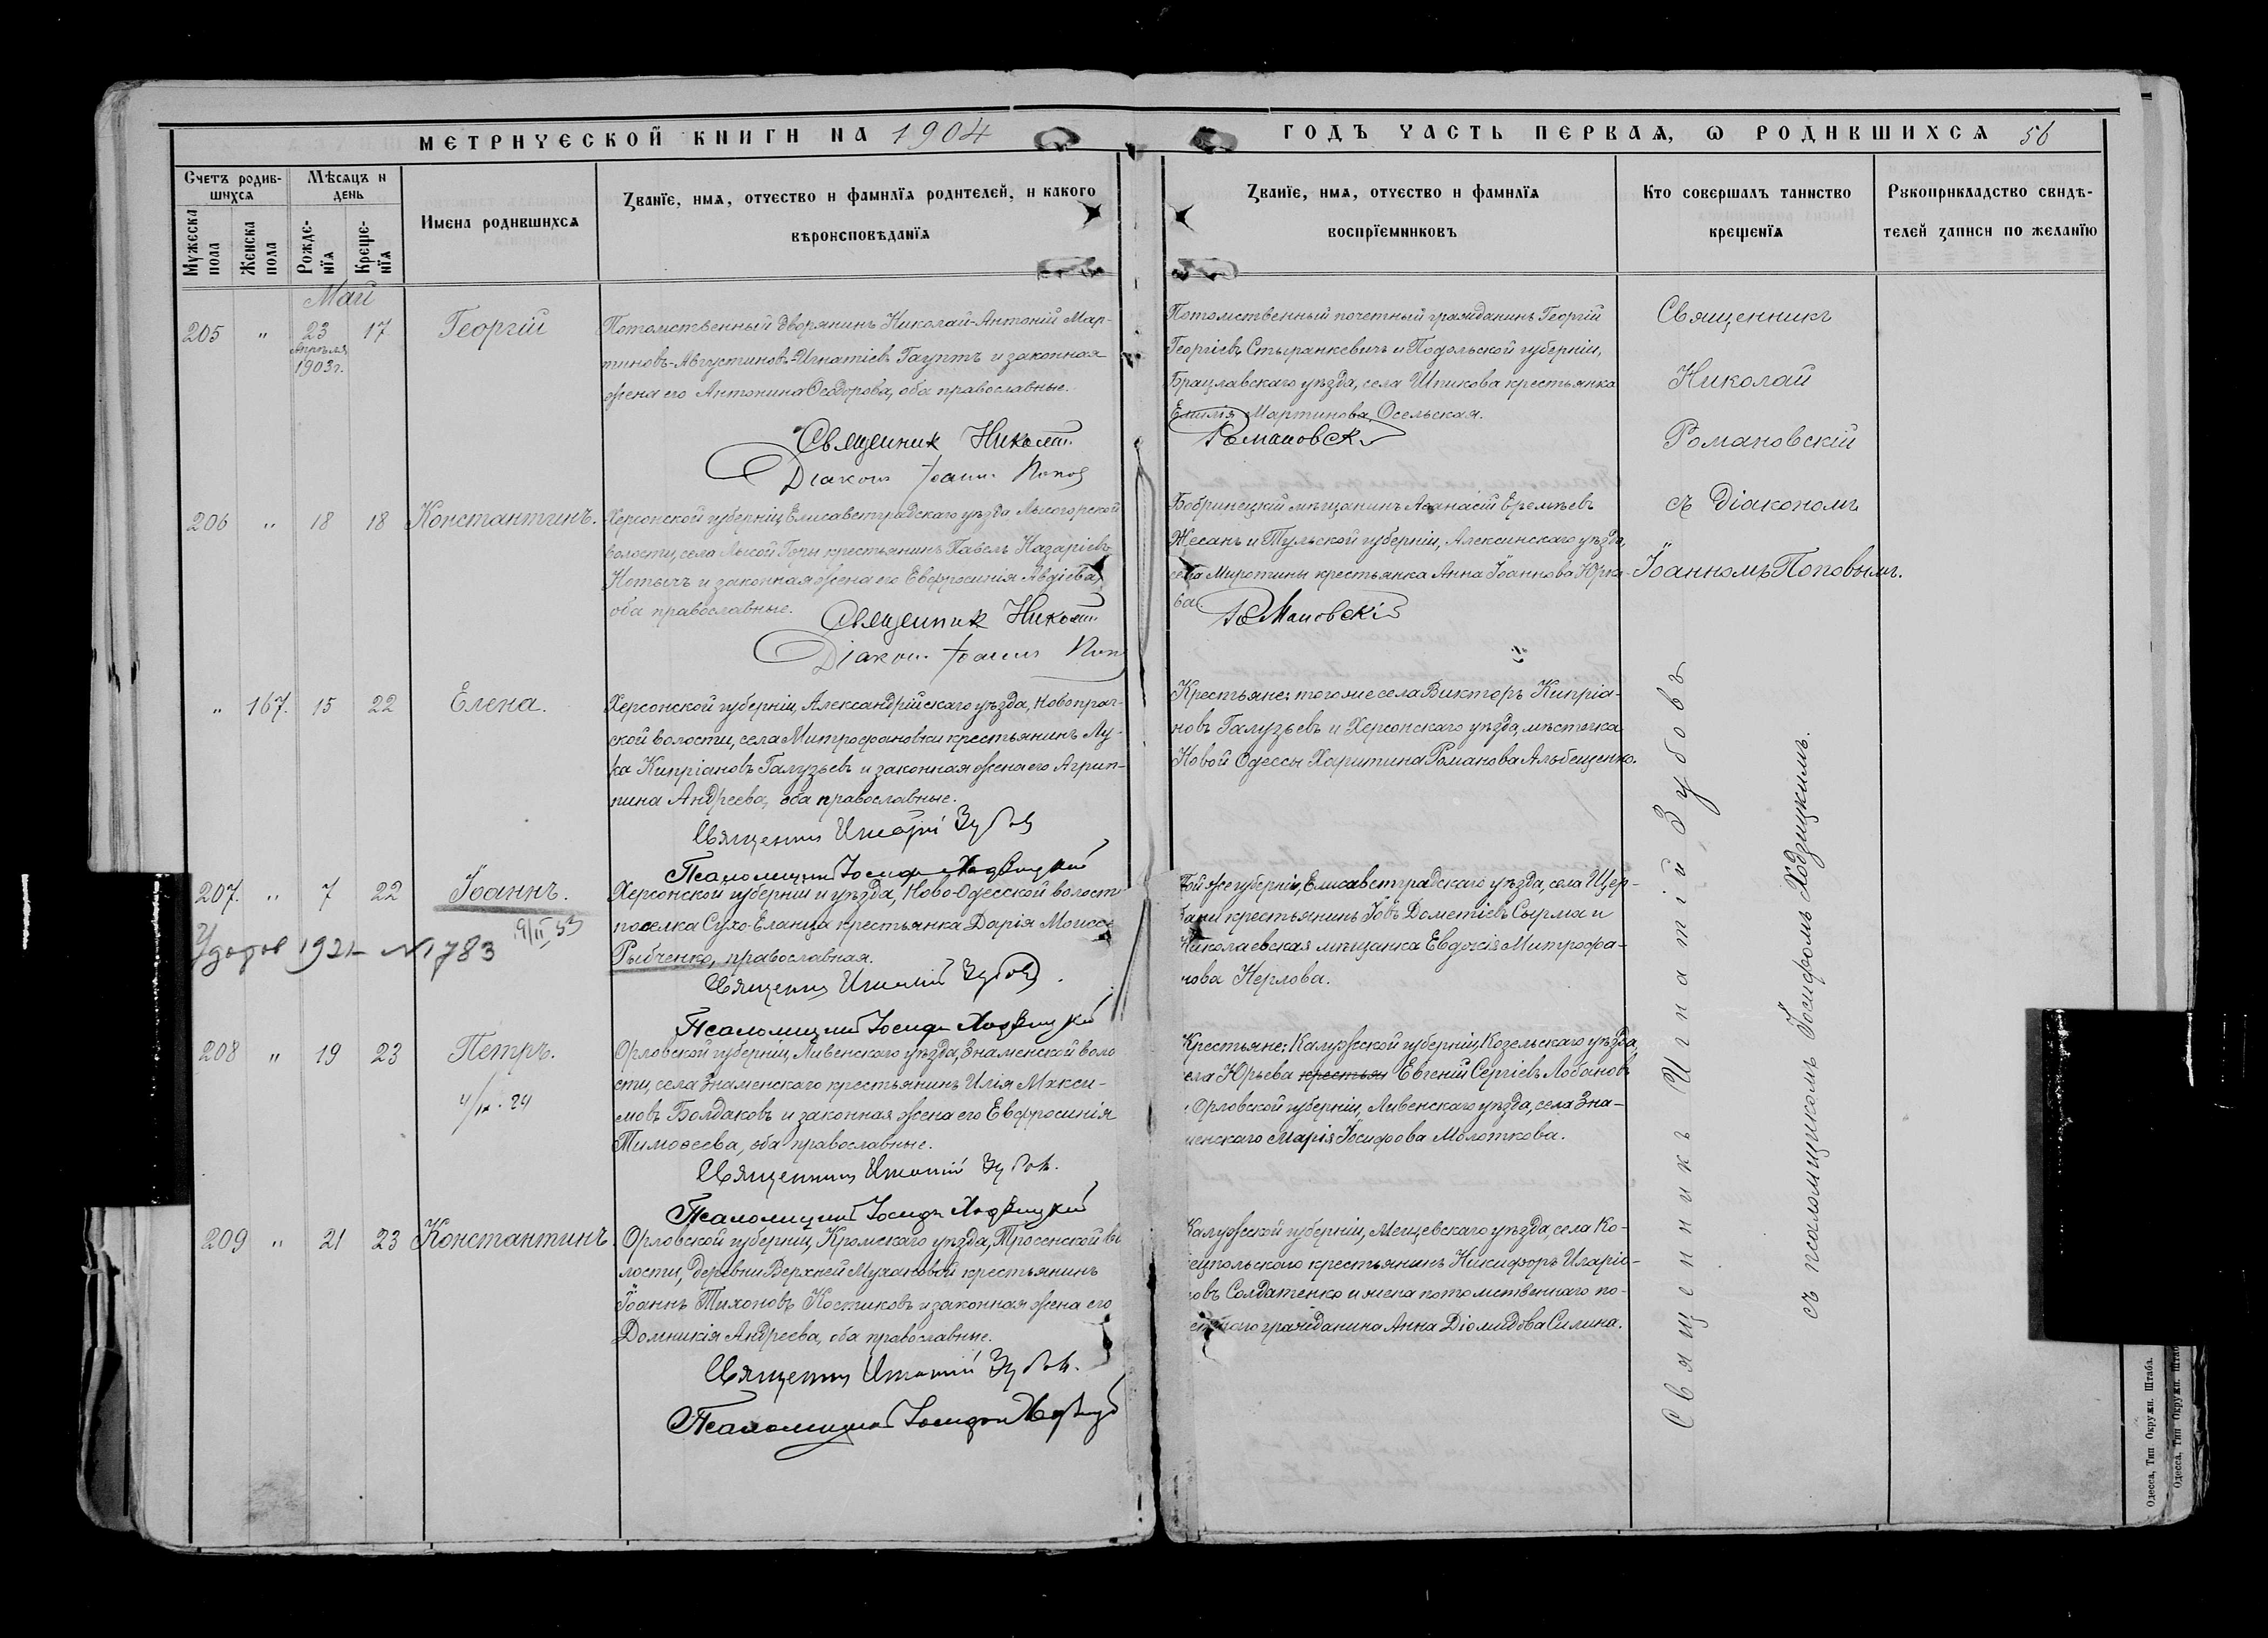 МЕТРИЧЕСКОЙ КНИГИ НА 1904
ГОДЪ ЧАСТЬ ПЕРВАЯ, Ѡ РОДИВШИХСЯ 56
Счетъ родив-
шихся
Мѣсяцъ и
день
Мужеска
пола
Женска
пола
Рожде-
нїя
Креще-
нїя
Имена родившихся
Званїе, имя, отчество и фамилїя родителей, и какого
вѣроисповѣданїя
Званїе, имя, отчество и фамилїя
воспрїемниковъ
Кто совершалъ таинство
крещенїя
Рукоприкладство свидѣ-
телей записи по желанїю
Май
205 " 23 17 Георгій
Апрѣля
1903 г.
Потомственный дворянинъ Николай-Антоній Мар-
тиновъ-Августиновъ-Игнатіевъ Гауптъ и законная
жена его Антонина Ѳеодорова, оба православные.
Священник Николай
Діаконъ Іоаннъ Попов
Потомственный почетный гражданинъ Георгій
Георгіевъ Стыранкевичъ и Подольской губерніи,
Брацлавскаго уѣзда, села Шпикова крестьянка
Емилія Мартинова Осельская.
Романовскій
Священникъ
Николай
Романовскій
съ Діакономъ
Іоанномъ Поповымъ.
206 " 18 18 Константинъ.
Херсонской губерніи, Елисаветградскаго уѣзда Лысогорской
волости, села Лысой Горы крестьянинъ Павелъ Назаріевъ
Нотычъ и законная жена его Евфросинія Авдіева,
оба православные.
Священник Николай
Діаконъ Іоаннъ Попов
Бобринецкій мѣщанинъ Аѳанасій Еремѣевъ
Жесанъ и Тульской губерніи, Алексинскаго уѣзда,
села Миротины крестьянка Анна Іоаннова Юрко-
ва.
Романовскій
" 167. 15 22 Елена.
Херсонской губерніи, Александрійскаго уѣзда, Новопраг-
ской волости, села Митрофановки крестьянинъ Лу-
ка Кипріановъ Галузьевъ и законная жена его Агрип-
пина Андреева, оба православные.
Священник Игнатій Зубов
Псаломщик Іосиф Ходзицкий
Крестьяне: того же села Викторъ Кипріа-
новъ Галузьевъ и Херсонскаго уѣзда, мѣстечка
Новой Одессы Харитина Романова Альбещенко.
207. " 7 22 Іоаннъ.
9/II 53
1921 N 1783
Херсонской губерніи и уѣзда, Ново-Одесской волости
поселка Сухо-Еланца крестьянка Дарія Моисее
Рыбченко, православная.
Священник Игнатій Зубов
Псаломщик Іосиф Ходзицкий
Той же губерніи, Елисаветградскаго уѣзда, села Щер-
бани крестьянинъ Іовъ Дометіевъ Сырма и
Николаевская мѣщанка Евдокія Митрофа-
нова Керлова.
208 " 19 23 Петръ.
4/IX. 24
Орловской губерніи, Ливенскаго уѣзда, Знаменской воло
сти, села Знаменскаго крестьянинъ Илія Макси-
мовъ Болдаковъ и законная жена его Евфросинія
Тимоѳеева, оба православные.
Священник Игнатій Зубов.
Псаломщик Іосиф Ходзицкий
Крестьяне: Калужской губерніи, Козельскаго уѣзда,
села Юрьева крестьян Евгеній Сергіевъ Лобановъ
Орловской губерніи, Ливенскаго уѣзда, села Зна-
менскаго Марія Іосифова Молоткова.
209 " 21 23 Константинъ
Орловской губерніи, Кромскаго уѣзда, Тросенской во
лости, деревни Верхней Мухановой крестьянинъ
Іоаннъ Тихоновъ Костиковъ и законная жена его
Домникія Андреева, оба православные.
Священник Игнатій Зубов.
Псаломщик Іосиф Ходзицк
Калужской губерніи, Мещевскаго уѣзда, села Ко-
ецпольского крестьянинъ Никифоръ Иларіо-
новъ Солдатенко и жена потомственнаго по-
четнаго гражданина Анна Діомидова Силина.
Священникъ Игнатій Зубовъ
съ псаломщикомъ Іосифомъ Ходзицкимъ.
Одесса, Тип Окружн. Штаба.
Одесса, Тип Окружн. Штаба